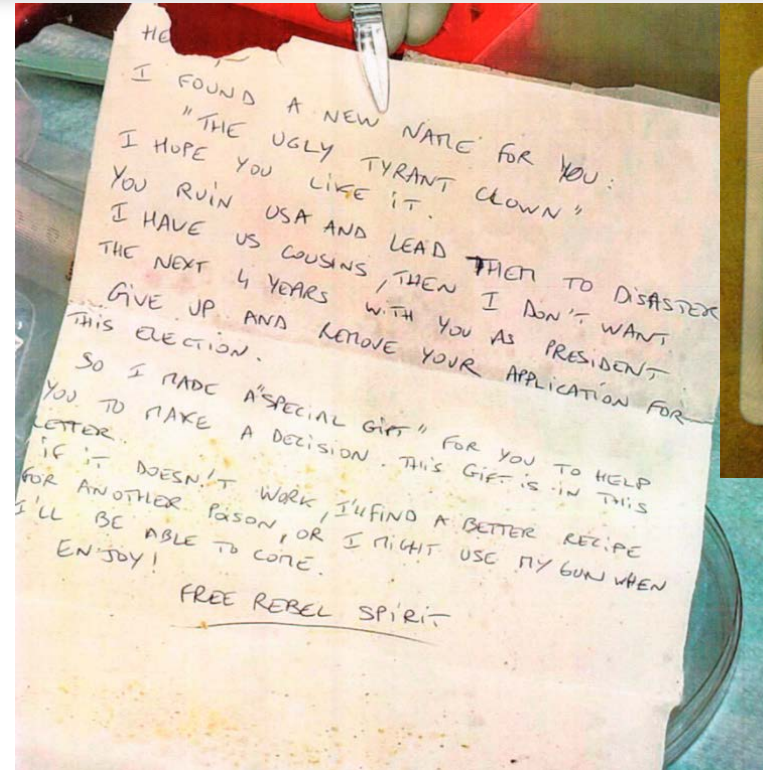 HE
I FOUND A NEW NAME FOR YOU:
"THE UGLY TYRANT CLOWN"
I HOPE YOU LIKE IT.
YOU RUIN USA AND LEAD THEM TO DISASTER
I HAVE US COUSINS, THEN I DON'T WANT
THE NEXT 4 YEARS WITH YOU AS PRESIDENT.
GIVE UP AND REMOVE YOUR APPLICATION FOR
THIS ELECTION.
SO I MADE A "SPECIAL GIFT" FOR YOU TO HELP
YOU TO MAKE A DECISION. THIS GIFT IS IN THIS
LETTER.
IF IT DOESN'T WORK, I'LL FIND A BETTER RECIPE
FOR ANOTHER POISON, OR I MIGHT USE MY GUN WHEN
I'LL BE ABLE TO COME.
ENJOY!
FREE REBEL SPIRIT